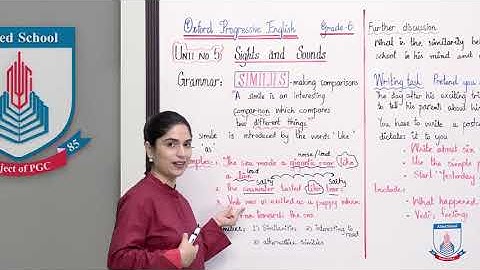 Allied School
Project of PGC
85
Oxford Progressive English Grade-6
Unit no 5 Sights and Sounds
Grammar: SIMILIS making comparisons
"A simile is an interesting
comparison which compares
two different things.
simile is introduced by the words 'like'
as
noise/loud
"The sea made a gigantic roar like
a lion loud
salty salty
2. the seawater tasted like tear
3. Veli was as excited as a puppy when
ran towards the sea.
1) Similarities 2) Interesting to read
3) alternative similies
Further discussion
What is the similarity be
school in his mind and
Writing task Pretend you
the day after his exciting tri
to tell his parents about his
You have to write a postc
dictates it to you
- Write about six
- Use the simple p
- Start 'Yesterday
Include:
- What happened
- Veli's feelings
Allied School